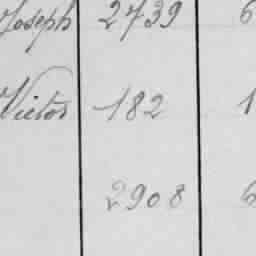 Joseph 2739 6
Victor 182 1
2908 6